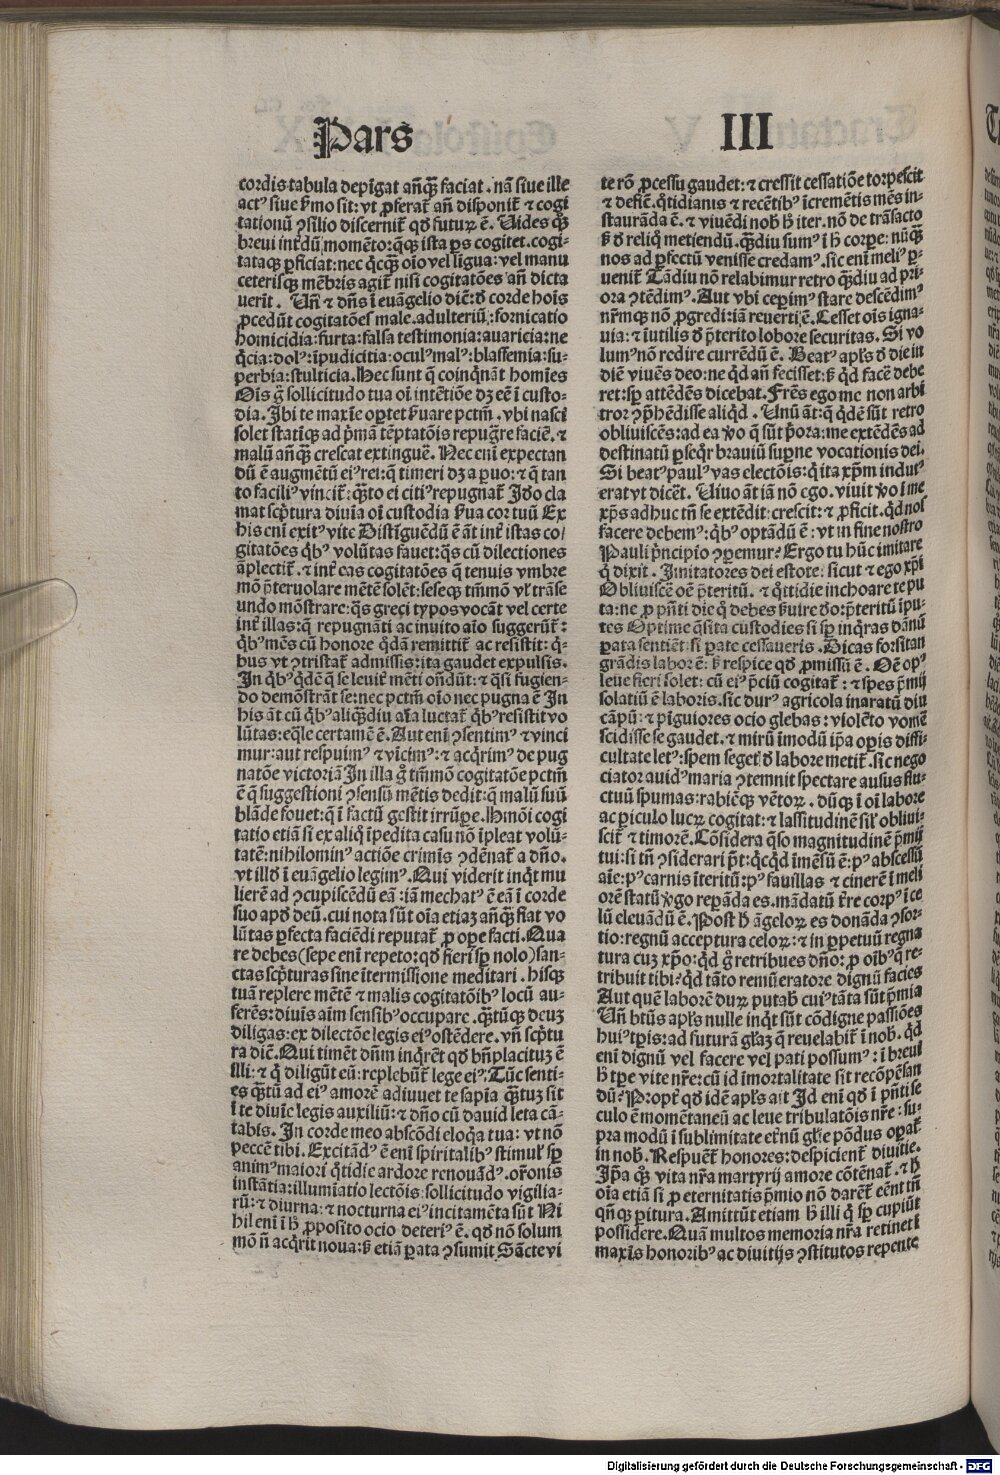 Pars III
cordis tabula depĩgat añq̃ faciat. nã siue ille
actꝰ siue ẜmo sit: vt ꝓferat̃ añ disponit̃ ⁊ cogi
tationũ ꝯsilio discernit̃ qđ futuꝝ ẽ. Uides q̃ꝫ
breui int̃dũ momẽto: q̃qꝫ ista ꝑs cogitet. cogi-
tataqꝫ ꝑficiat: nec q̇cq̃ꝫ oĩo vel lĩgua: vel manu
ceterisqꝫ mẽbris agit̃ nisi cogitatões añ dicta
uerit. Uñ ⁊ dñs ĩ euãgelio diẽ: đ corde hoĩs
ꝓcedũt cogitatões male. adulteriũ: fornicatio
homicidia: furta: falsa testimonia: auaricia: ne
q̇cia: dolꝰ: ĩpudicitia: oculꝰ malꝰ: blassemia: su-
perbia: stulticia. Hec sunt q̃ coinq̇nãt homĩes
Oĩs g̊ sollicitudo tua oĩ intẽtiõe dꝫ eẽ ĩ custo-
dia. Ibi te maxĩe oꝑtet ẜuare pctm̃. vbi nasci
solet statĩqꝫ ad p̃mã tẽptatõis repug̃re faciẽ. ⁊
malũ añq̃ꝫ crescat extinguẽ. Nec enĩ expectan
dũ ẽ augmẽtũ eiꝰ rei: q̃ timeri dꝫ a ꝑuo: ⁊ q̃ tan
to faciliꝰ vincit̃: q̃ꝫto ei citiꝰ repugnat̃ Iđo cla
mat scp̃tura diuĩa oĩ custodia ẜua cor tuũ Ex
his enĩ exitꝰ vite Distĩguẽdũ ẽ ãt int̃ istas co/
gitatões q̇bꝰ volũtas fauet: q̃s cũ dilectiones
ãplectit̃. ⁊ int̃ eas cogitatões q̃ tenuis vmbre
mõ p̃teruolare mẽtẽ solẽt: seseqꝫ tm̃mõ vł trãse
undo mõstrare: q̃s greci typos vocãt vel certe
int̃ illas: q̃ repugnãti ac inuito aĩo suggerũt̃:
q̇bꝰ mẽs cũ honore q̇dã remittit̃ ac resistit: q̇-
bus vt ꝯtristat̃ admissis: ita gaudet expulsis.
In q̇bꝰ q̇dẽ q̃ se leuit̃ mẽti oñdũt: ⁊ q̃si fugien-
do demõstrãt se: nec pctm̃ oĩo nec pugna ẽ In
his ãt cũ q̇bꝰ aliq̃ꝫdiu aĩa luctat̃ q̇bꝰ resistit vo
lũtas: eq̃le certamẽ ẽ. Aut enĩ ꝯsentimꝰ ⁊ vinci
mur: aut respuimꝰ ⁊ vĩcimꝰ: ⁊ acq̇rimꝰ de pug
natõe victoriã In illa g̊ tm̃mõ cogitatõe pctm̃
ẽ q̃ suggestioni ꝯsensũ mẽtis dedit: q̃ malũ suũ
blãde fouet: q̃ ĩ factũ gestit irrũꝑe. Hm̃õi cogi
tatio etiã si ex aliq̃ ĩpedita casu nõ ĩpleat volũ-
tatẽ: nihilominꝰ actiõe crimĩs ꝯdẽnat̃ a dño.
vt illđ ĩ euãgelio legimꝰ. Qui viderit inq̇t mu
lierẽ ad ꝯcupiscẽdũ eã: iã mechatꝰ ẽ eã ĩ corde
suo apđ deũ. cui nota sũt oĩa etiaꝫ añq̃ꝫ fiat vo
lũtas ꝑfecta faciẽdi reputat̃ ꝓ oꝑe facti. Qua
re debes (sepe enĩ repeto: qđ fieri sp̃ nolo) san-
ctas scp̃turas sine ĩtermissione meditari. hisqꝫ
tuã replere mẽtẽ ⁊ malis cogitatõibꝰ locũ au-
ferẽs: diuĩs aĩm sensibꝰ occupare. q̃ꝫtũqꝫ deuꝫ
diligas: ex dilectõe legis eiꝰ ostẽdere. vñ scp̃tu
ra diẽ. Qui timẽt dñm inq̇rẽt qđ bñplacituꝫ ẽ
illi: ⁊ q̇ diligũt eũ: replebũt̃ lege eiꝰ. Tũc senti-
es q̃ꝫtũ ad eiꝰ amorẽ adiuuet te sapia q̃ꝫtuꝫ sit
ĩ te diuĩe legis auxiliũ: ⁊ dño cũ dauid leta cã-
tabis. In corde meo abscõdi eloq̃a tua: vt nõ
peccẽ tibi. Excitãdꝰ ẽ enĩ spiritalibꝰ stimuł sp̃
animꝰ maiori q̇tidie ardore renouãdꝰ. or̃onis
instãtia: illumĩatio lectõis: sollicitudo vigilia-
rũ: ⁊ diurna: ⁊ nocturna eiꝰ incitamẽta sũt Ni
hil enĩ ĩ ħ ꝓposito ocio deteriꝰ ẽ. qđ nõ solum
mõ ñ acq̇rit noua: ẜ etiã ꝑata ꝯsumit Sãcte vi
te rõ ꝓcessu gaudet: ⁊ cressit cessatiõe torpescit
⁊ defiẽ. q̇tidianis ⁊ recẽtibꝰ ĩcremẽtis mẽs in-
staurãda ẽ. ⁊ viuẽdi nob̃ ħ iter. nõ de trãsacto
ẜ đ reliq̊ metiendũ. q̃ꝫdiu sumꝰ ĩ ħ corꝑe: nũq̃ꝫ
nos ad ꝑfectũ venisse credamꝰ. sic enĩ meliꝰ ꝑ-
uenit̃ Tãdiu nõ relabimur retro q̃ꝫdiu ad pri-
ora ꝯtẽdimꝰ. Aut vbi ceperimꝰ stare descẽdimꝰ
nr̃mqꝫ nõ ꝓgredi: iã reuerti ẽ. Cesset oĩs igna-
uia: ⁊ ĩutilis đ p̃terito lobore securitas. Si vo
lumꝰ nõ redire currẽdũ ẽ. Beatꝰ apłs đ die in
diẽ viuẽs deo: ne q̇d añ fecisset: ẜ q̇d facẽ debe
ret: sp̃ attẽdẽs dicebat. Fr̃es ego me non arbi
tror ꝯp̃hẽdisse aliq̇d. Unũ ãt: q̃ q̇dẽ sũt retro
obliuiscẽs: ad ea ỽo q̃ sũt p̃ora: me extẽdẽs ad
destinatũ ꝑseq̃r brauiũ suꝑne vocationis dei.
Si beatꝰ paulꝰ vas electõis: q̇ ita xp̃m indutꝰ
erat vt dicẽt. Uiuo ãt iã nõ ego. viuit ỽo ĩ me
xp̃s adhuc tñ se extẽdit: crescit: ⁊ ꝓficit. q̇d nos
facere debemꝰ: q̇bꝰ optãdũ ẽ: vt in fine nostro
Pauli p̃ncipio ꝯꝑemur? Ergo tu hũc imitare
q̇ dixit. Imitatores dei estote: sicut ⁊ ego xp̃i
Obliuiscẽ oẽ p̃teritũ. ⁊ q̇ttidie inchoare te pu
ta: ne ꝓ p̃nti die q̇ debes ẜuire đo: p̃teritũ ĩpu-
tes Optime q̃sita custodies si sp̃ inq̇ras dãnũ
ꝑata sentiet: si ꝑate cessaueris. Dicas forsitan
grãdis labor ẽ: ẜ respice qđ ꝓmissũ ẽ. Oẽ opꝰ
leue fieri solet: cũ eiꝰ p̃ciũ cogitat̃: ⁊ spes p̃mij
solatiũ ẽ laboris. sic durꝰ agricola inaratũ diu
cãpũ: ⁊ pĩguiores ocio glebas: violẽto vomẽ
scidisse se gaudet. ⁊ mirũ ĩmodũ ip̃a oꝑis diffi-
cultate letꝰ: spem segetꝭ đ labore metit̃. sic nego
ciator auidꝰ maria ꝯtemnit spectare ausus flu-
ctuũ spumas: rabiẽqꝫ vẽtoꝝ. dũqꝫ ĩ oĩ labore
ac ꝑiculo lucꝝ cogitat: ⁊ lassitudinẽ sił obliui-
scit̃ ⁊ timorẽ. Cõsidera q̃so magnitudinẽ p̃mij
tui: si tñ ꝯsiderari p̃t: q̇cq̇d ĩmẽsũ ẽ: pꝰ abscessũ
aĩe: pꝰ carnis ĩteritũ: pꝰ fauillas ⁊ cinerẽ ĩ meli
orẽ statũ ỽgo reparãda es. mãdatũ t̃re corpꝰ ĩ ce
lũ eleuãdũ ẽ. Post ħ ãgeloꝝ es donãda ꝯsor-
tio: regnũ acceptura celoꝝ: ⁊ in ꝑpetuũ regna
tura cuꝫ xp̃o: q̇d g̊ retribues dño: ꝓ oĩbꝰ q̃ re-
tribuit tibi? q̇d tãto remũeratore dignũ facies
Aut quẽ laborẽ duꝝ putab̃ cuiꝰ tãta sũt p̃mia
Uñ btũs apłs nulle inq̇t sũt cõdigne passiões
huiꝰ tꝑis: ad futurã głiaꝫ q̃ reuelabit̃ ĩ nob̃. q̇d
enĩ dignũ vel facere vel pati possumꝰ: ĩ breui
ħ tꝑe vite nr̃e: cũ id ĩmortalitate sit recõpẽsan
dũ? Propt̃ qđ idẽ apłs ait Id enĩ qđ ĩ p̃nti se
culo ẽ momẽtaneũ ac leue tribulatõis nr̃e: su-
pra modũ ĩ sublimitate et̃nũ głie põdus oꝑat̃
in nob̃. Respuẽt̃ honores: despicient̃ diuitie.
Ip̃a q̊ꝫ vita nr̃a martyrij amore cõtẽnat̃. ⁊ ħ
oĩa etiã si ꝓ eternitatis p̃mio nõ darẽt̃ eẽnt tñ
qñqꝫ ꝑitura. Amittũt etiam ħ illi q̇ sp̃ cupiũt
possidere. Quã multos memoria nr̃a retinet ĩ
maxĩs honoribꝰ ac diuitijs ꝯstitutos repente
Digitalisierung gefördert durch die Deutsche Forschungsgemeinschaft - DFG